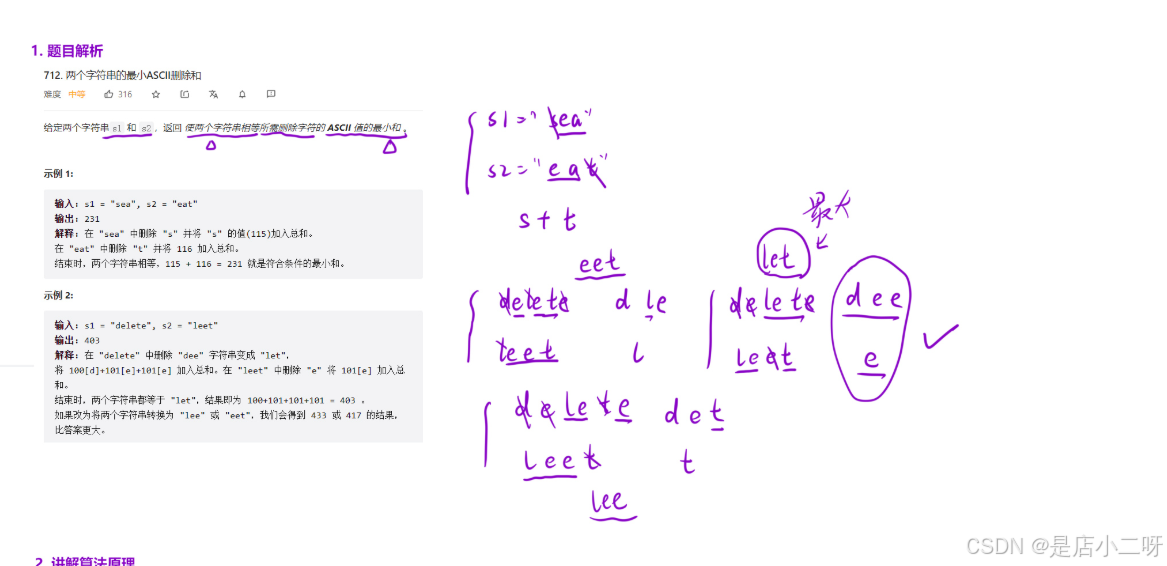 1. 题目解析
712. 两个字符串的最小ASCII删除和
难度 中等 316
给定两个字符串 s1 和 s2，返回 使两个字符串相等所需删除字符的 ASCII 值的最小和 。
示例 1:
输入: s1 = "sea", s2 = "eat"
输出: 231
解释: 在 "sea" 中删除 "s" 并将 "s" 的值(115)加入总和。
在 "eat" 中删除 "t" 并将 116 加入总和。
结束时，两个字符串相等，115 + 116 = 231 就是符合条件的最小和。
示例 2:
输入: s1 = "delete", s2 = "leet"
输出: 403
解释: 在 "delete" 中删除 "dee" 字符串变成 "let"，
将 100[d]+101[e]+101[e] 加入总和。在 "leet" 中删除 "e" 将 101[e] 加入总
和。
结束时，两个字符串都等于 "let"，结果即为 100+101+101+101 = 403 。
如果改为将两个字符串转换为 "lee" 或 "eet"，我们会得到 433 或 417 的结果，
比答案更大。
s1 = "sea"
s2 = "eat"
s + t
eet
delete d le
leet l
最大
let
delete dee
leet e
delete det
leet t
lee
2. 讲解算法原理
CSDN @是店小二呀